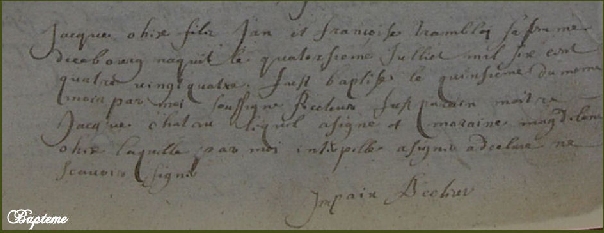 Jacque ohire fils Jan et francoise tramblei sa femme
de cebourg naquit le quatorsieme Julliet mil six cent
quatre vingt quatre. fust baptisé le quinsieme du meme
mois par moi soussigne Recolect fust parain maitre
Jacque chateau lequel a signe et maraine magdelene
ohire laquelle par moi interpellee a signer a declare ne
scavoir signer
Recolect
Bapteme